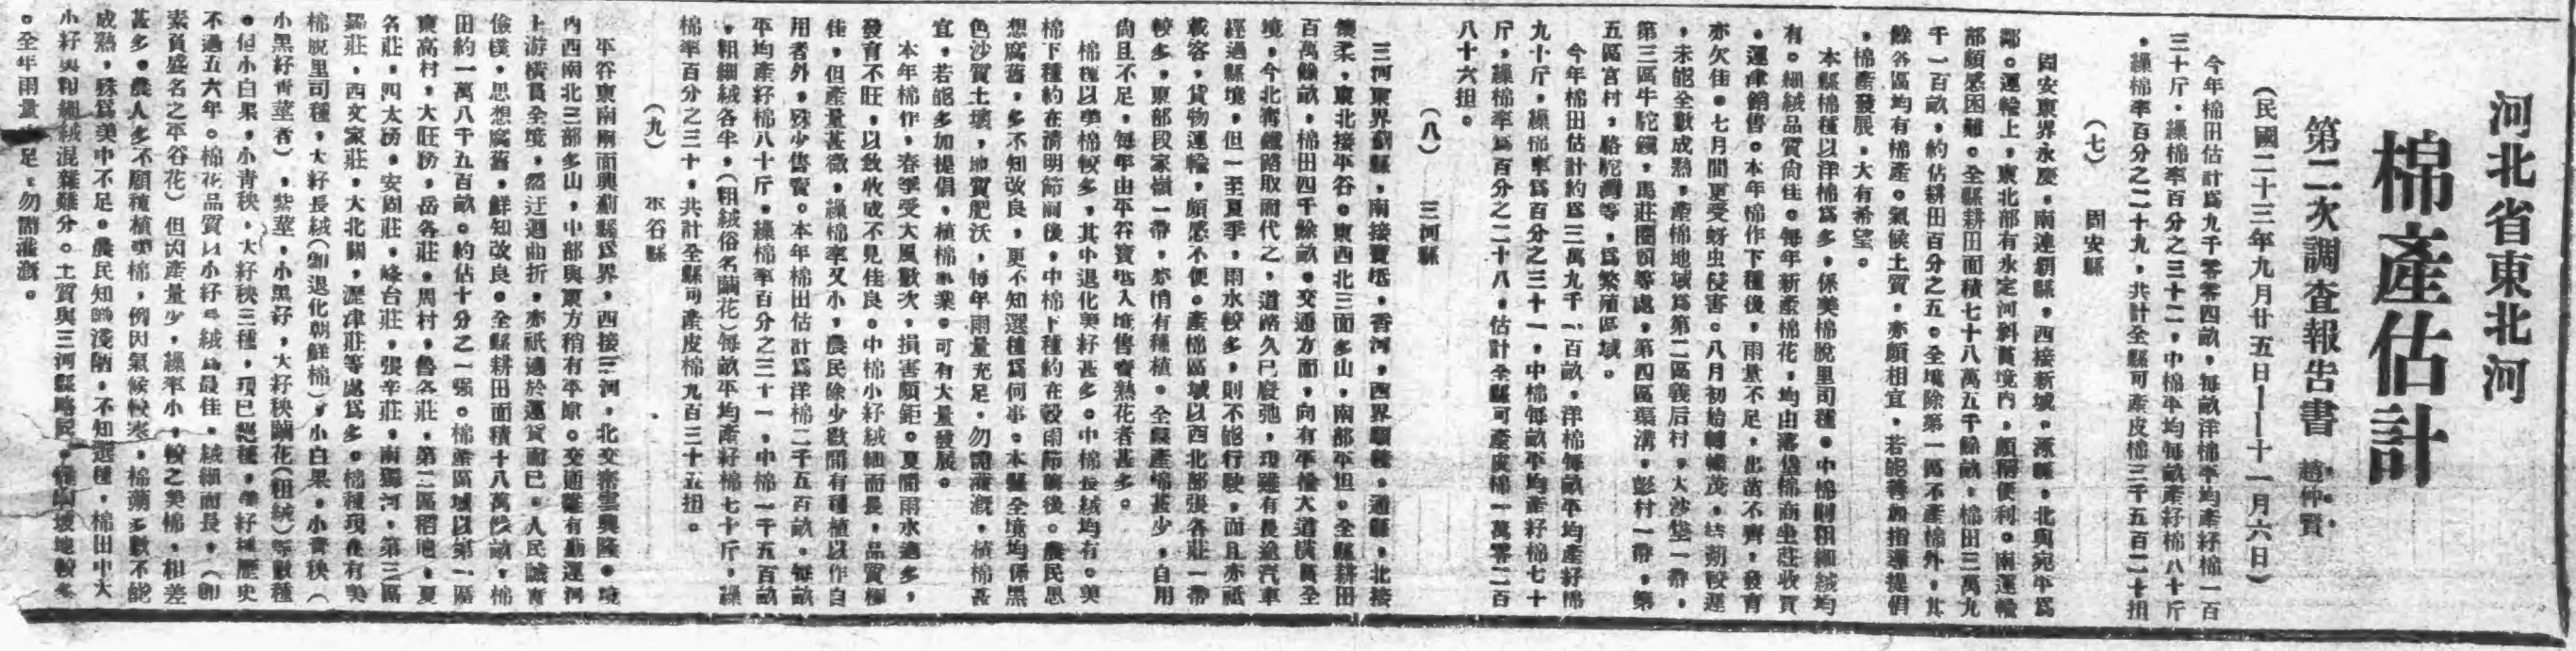 河北省東北河
棉產估計
第二次調查報告書 趙仲賢
(民國二十三年九月廿五日——十一月六日)
今年棉田估計爲九千零零四畝,每畝洋棉平均產籽棉一百
三十斤,繰棉率百分之三十二,中棉平均每畝產籽棉八十斤
,繰棉率百分之二十九,共計全縣可產皮棉三千五百二十担
(七) 固安縣
固安東界永慶,南連霸縣,西接新城,涿縣,北與宛平爲
鄰。運輸上,東北部有永定河斜貫境內,頗稱便利。南運輸
部頗感困難。全縣耕田面積七十八萬五千餘畝,棉田三萬九
千一百畝,約佔耕田百分之五。全境除第一區不產棉外,其
餘各區均有棉產。氣候土質,亦頗相宜,若能善加指導提倡
,棉產發展,大有希望。
本縣棉種以洋棉爲多,係美棉脫里司種。中棉則粗細絨均
有。細絨品質尙佳。每年新產棉花,均由落堡棉商坐莊收買
,運津銷售。本年棉作下種後,雨量不足,出苗不齊,發育
亦欠佳。七月間更受蚜虫侵害。八月初始轉茂,較遲
,未能全數成熟,產棉地域爲第二區義后村,大沙垡一帶,第
第三區牛駝鎭,馬莊圈頭等處,第四區渠溝,彭村一帶,第
五區宮村,駱駝灣等,爲繁殖區域。
今年棉田估計約爲三萬九千一百畝,洋棉每畝平均產籽棉
九十斤,繰棉率爲百分之三十一,中棉每畝平均產籽棉七十
斤,繰棉率爲百分之二十八,估計全縣可產皮棉一萬零二百
八十六担。
(八) 三河縣
三河東界薊縣,南接寶坻,香河,西界順義,通縣,北接
懷柔,東北接平谷。東西北三面多山,南部平坦。全縣耕田
百萬餘畝,棉田四千餘畝。交通方面,向有平楡大道橫貫全
境,今北寧鐵路取而代之,道路久已廢弛,現雖有長途汽車
經過縣境,但一至夏季,雨水較多,則不能行駛,而且亦祇
載客,貨物運輸,頗感不便。產棉區域以西北部張各莊一帶
較多,東部段家嶺一帶,亦稍有種植。全縣產棉甚少,自用
尙且不足,每年由平谷寶坻入境售賣熟花者甚多。
棉種以美棉較多,其中退化美籽甚多。中棉長絨均有。美
棉下種約在淸明節前後,中棉下種約在穀雨節前後。農民思
想腐舊,多不知改良,更不知選種爲何事。本縣全境均係黑
色沙質土壤,地質肥沃,每年雨量充足,勿需灌漑,植棉甚
宜,若能多加提倡,植棉事業。可有大量發展。
本年棉作,春季受大風數次,損害頗鉅。夏間雨水過多,
發育不旺,以致收成不見佳良。中棉小籽絨細而長,品質極
佳,但產量甚微,繰棉率又小,農民除少數間有種植以作自
用者外,殊少售賣。本年棉田估計爲洋棉二千五百畝,每畝
平均產籽棉八十斤,繰棉率百分之三十一,中棉一千五百畝
,粗細絨各半,(粗絨俗名繭花)每畝平均產籽棉七十斤,繰
棉率百分之三十,共計全縣可產皮棉九百三十五担。
(九) 平谷縣
平谷東南兩面與薊縣爲界,西接三河,北交密雲興隆。境
內西南北三部多山,中部與東方稍有平原。交通雖有薊運河
上游橫貫全境,然迂迴曲折,亦祇適於運貨而已。人民誠實
儉樸,思想腐舊,鮮知改良。全縣耕田面積十八萬餘畝,棉
田約一萬八千五百畝。約佔十分之一强。棉產區域以第一區
東高村,大旺務,岳各莊,周村,魯各莊,第二區稻地,夏
各莊,四太務,安固莊,峰台莊,張辛莊,南獨河,第三區
羅莊,西文家莊,大北關,瀝津莊等處爲多。棉種現在有美
棉脫里司種,大籽長絨(卽退化朝鮮棉),小白果,小靑秧(
小黑籽靑莖者),紫莖,小黑籽,大籽秧繭花(粗絨)等數種
。但小白果,小靑秧,大籽秧三種,現已絕種,美籽種歷史
不過五六年。棉花品質以小籽長絨爲最佳,絨細而長,(卽
素負盛名之平谷花)但因產量少,繰率小,較之美棉,相差
甚多。農人多不願種植美棉,例因氣候較寒,棉萌多數不能
成熟,殊爲美中不足。農民知識淺陋,不知選種,棉田中大
小籽與粗細絨混雜難分。土質與三河縣略同,壤地較多
。全年雨量足,勿需灌漑。